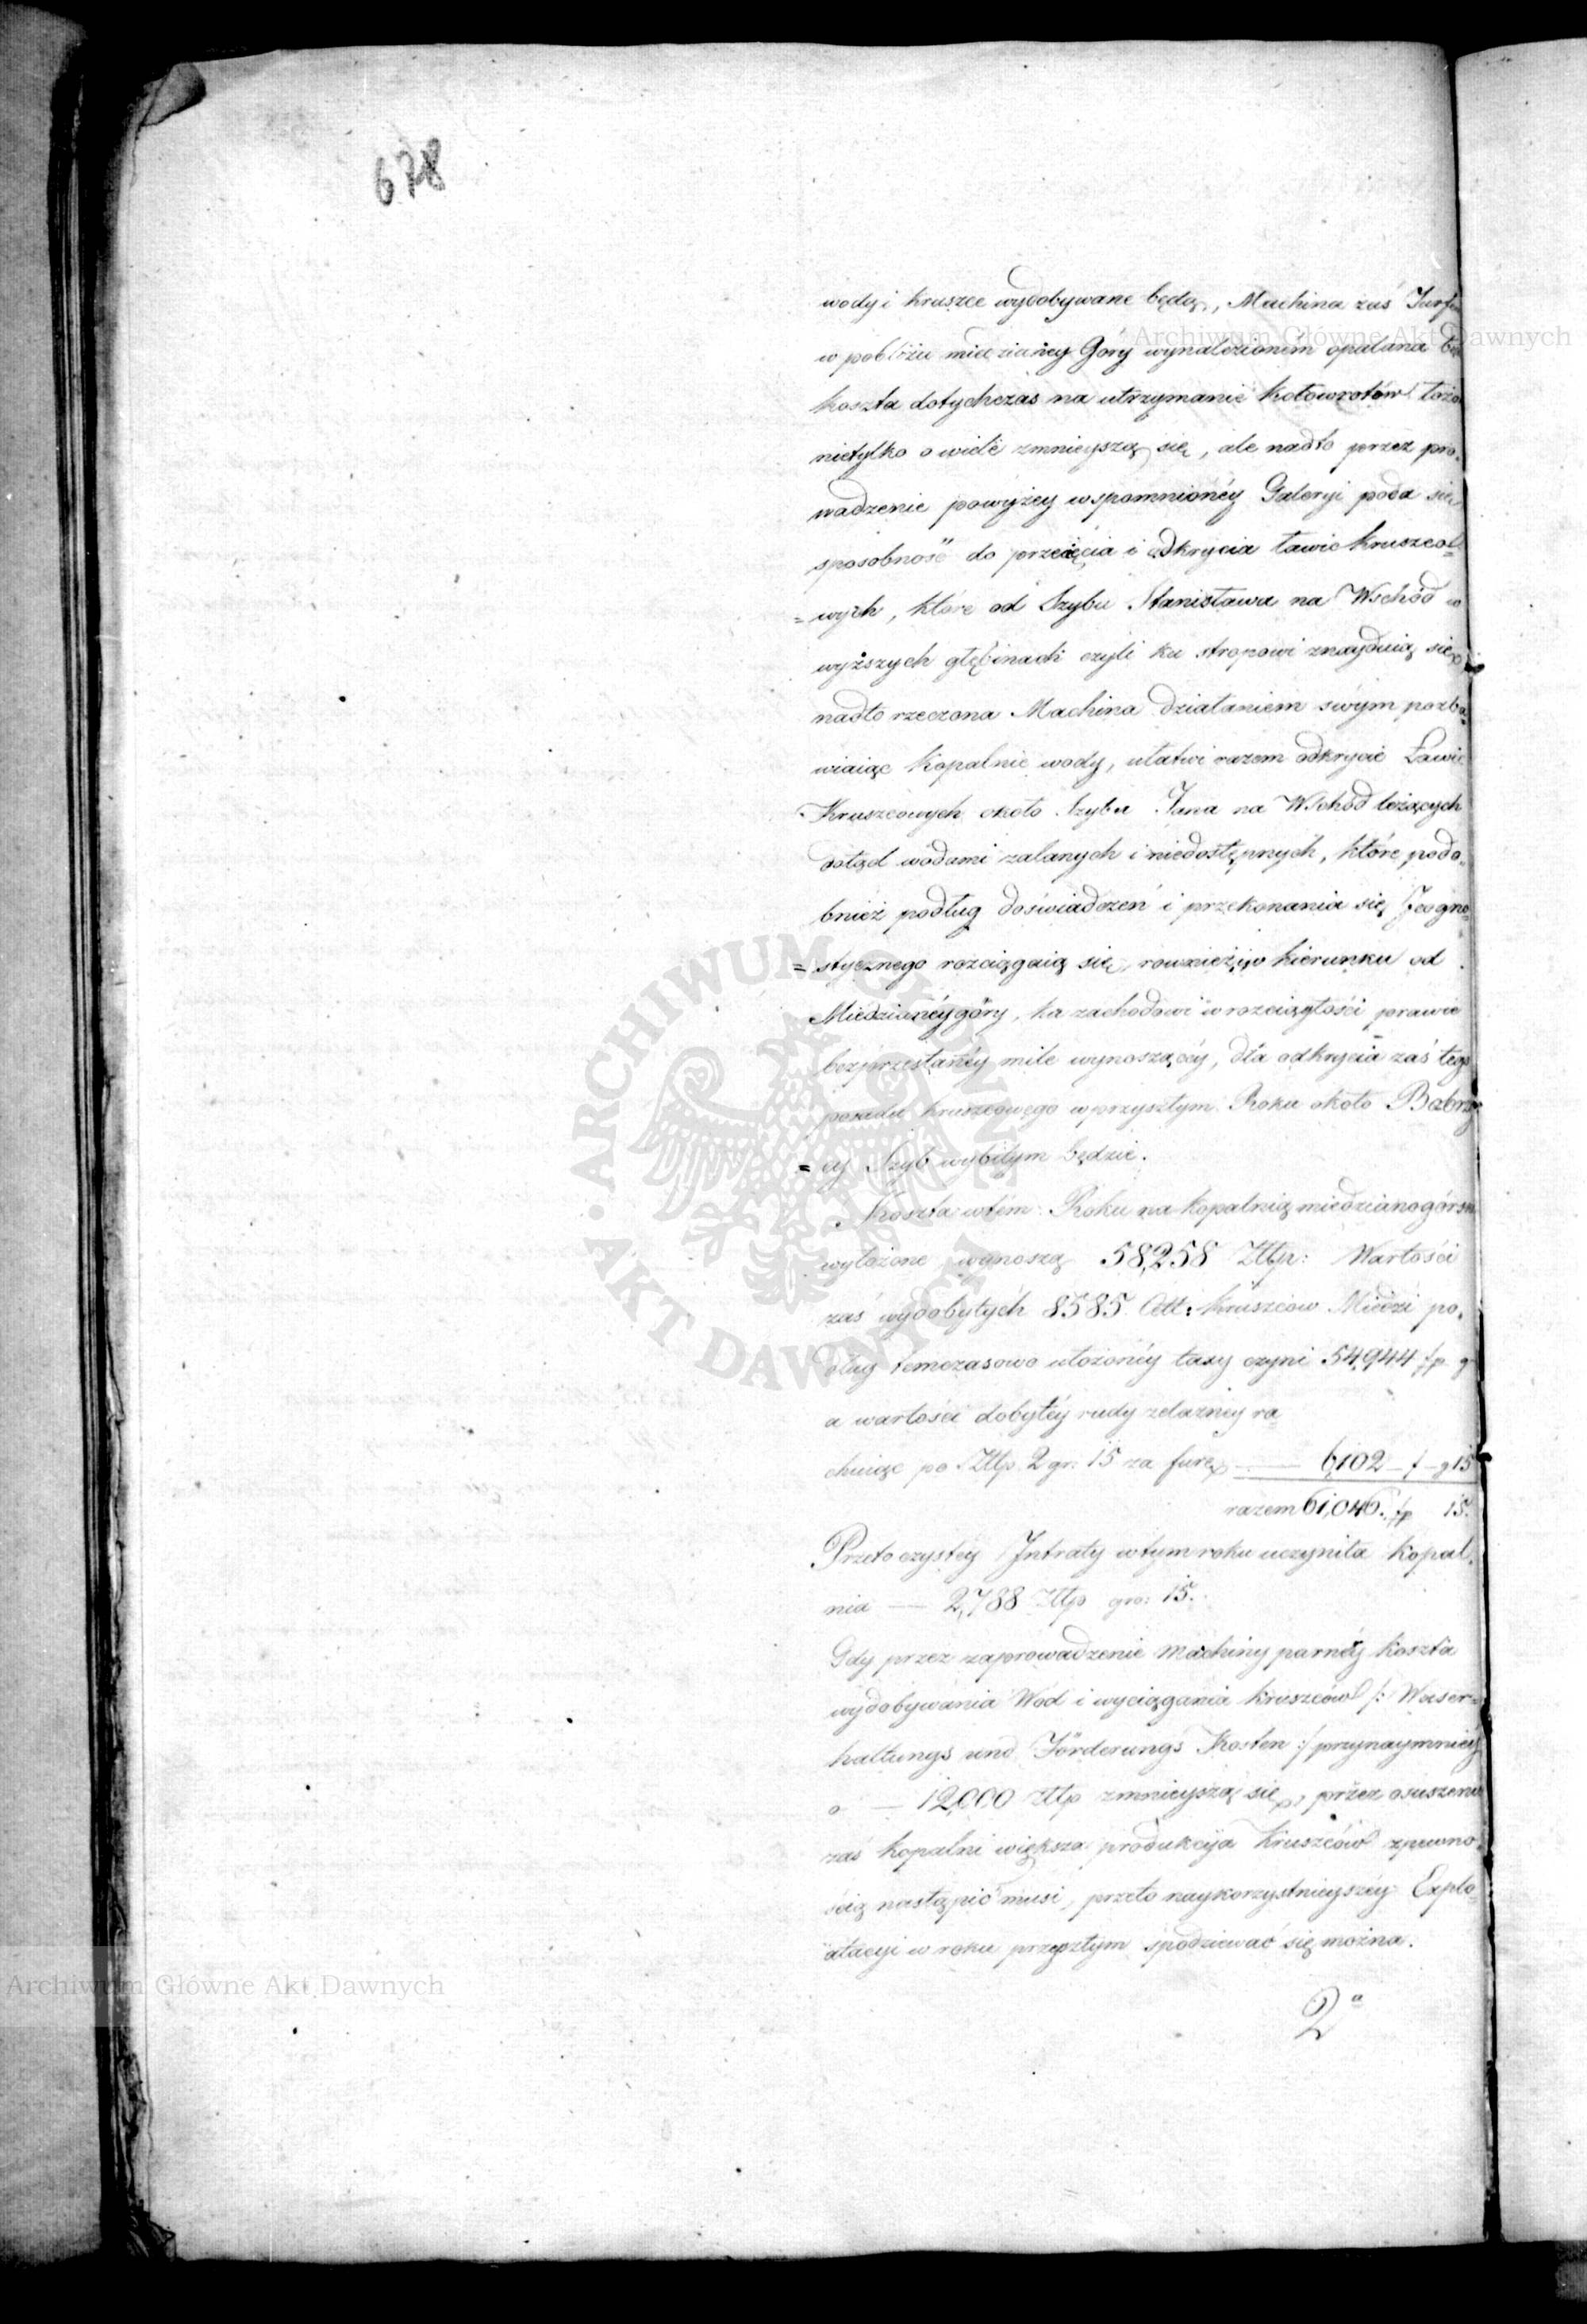 678
wody i kruszce wydobywane będą, Machina zaś Turf
w pobliżu miedzianey Góry wynalezionem opalana bę
koszta dotychczas na utrzymanie kołowrotów łożo
nietylko o wiele zmnieyszą się, ale nadto przez pro-
wadzenie powyżey wspomnionéy Galeryi poda się
sposobność do przecięcia i odkrycia ławic kruszco-
=wych, które od Szybu Stanisława na Wschód w
wyższych głębinach czyli ku stropowi znayduią się
nadto rzeczona Machina działaniem swym pozba-
wiaiąc Kopalnie wody, ułatwi razem odkrycie Ławic
Kruszcowych około Szybu Jana na Wschód leżących
dotąd wodami zalanych i niedostępnych, które podo-
bnież podług doświadczeń i przekonania się Jeogno-
=stycznego rozciągaią się, rownież w kierunku od
Miedzianéygóry, ku zachodowi w rozciągłości prawie
bezprzestanéy mile wynoszącéy, dla odkrycia zaś tego
pokładu kruszcowego w przyszłym Roku około Bobrz
=cy Szyb wybitym będzie.
Koszta w tém Roku na kopalnią miedzianogórsk
wyłożone wynoszą 58,258 Złtp: Wartości
zaś wydobytych 8585 Cett: kruszców Miedzi po-
dług temczasowo ułożonéy taxy czyni 54,944 fp g
a wartości dobytéy rudy żelazney ra-
chuiąc po Złtp 2 gr: 15 za furę — 6,102 — f — g 15
razem 61,046. fp 15.
Przeto czystey Jntraty w tym roku uczyniła kopal-
nia — 2,788 Złtp gro: 15.
Gdy przez zaprowadzenie machiny parnéy koszta
wydobywania Wod i wyciągania kruszców /: Waser-
haltungs und Förderungs Kosten :/ przynaymniéy
o — 12,000 Złtp zmnieyszą się, przez osuszenie
zaś kopalni większa produkcyja Kruszców z pewno-
ścią nastąpić musi, przeto naykorzystnieyszéy Explo-
atacyi w roku przyszłym spodziewać się można.
2a
Archiwum Główne Akt Dawnych
Archiwum Główne Akt Dawnych
ARCHIWUM GŁÓWNE AKT DAWNYCH